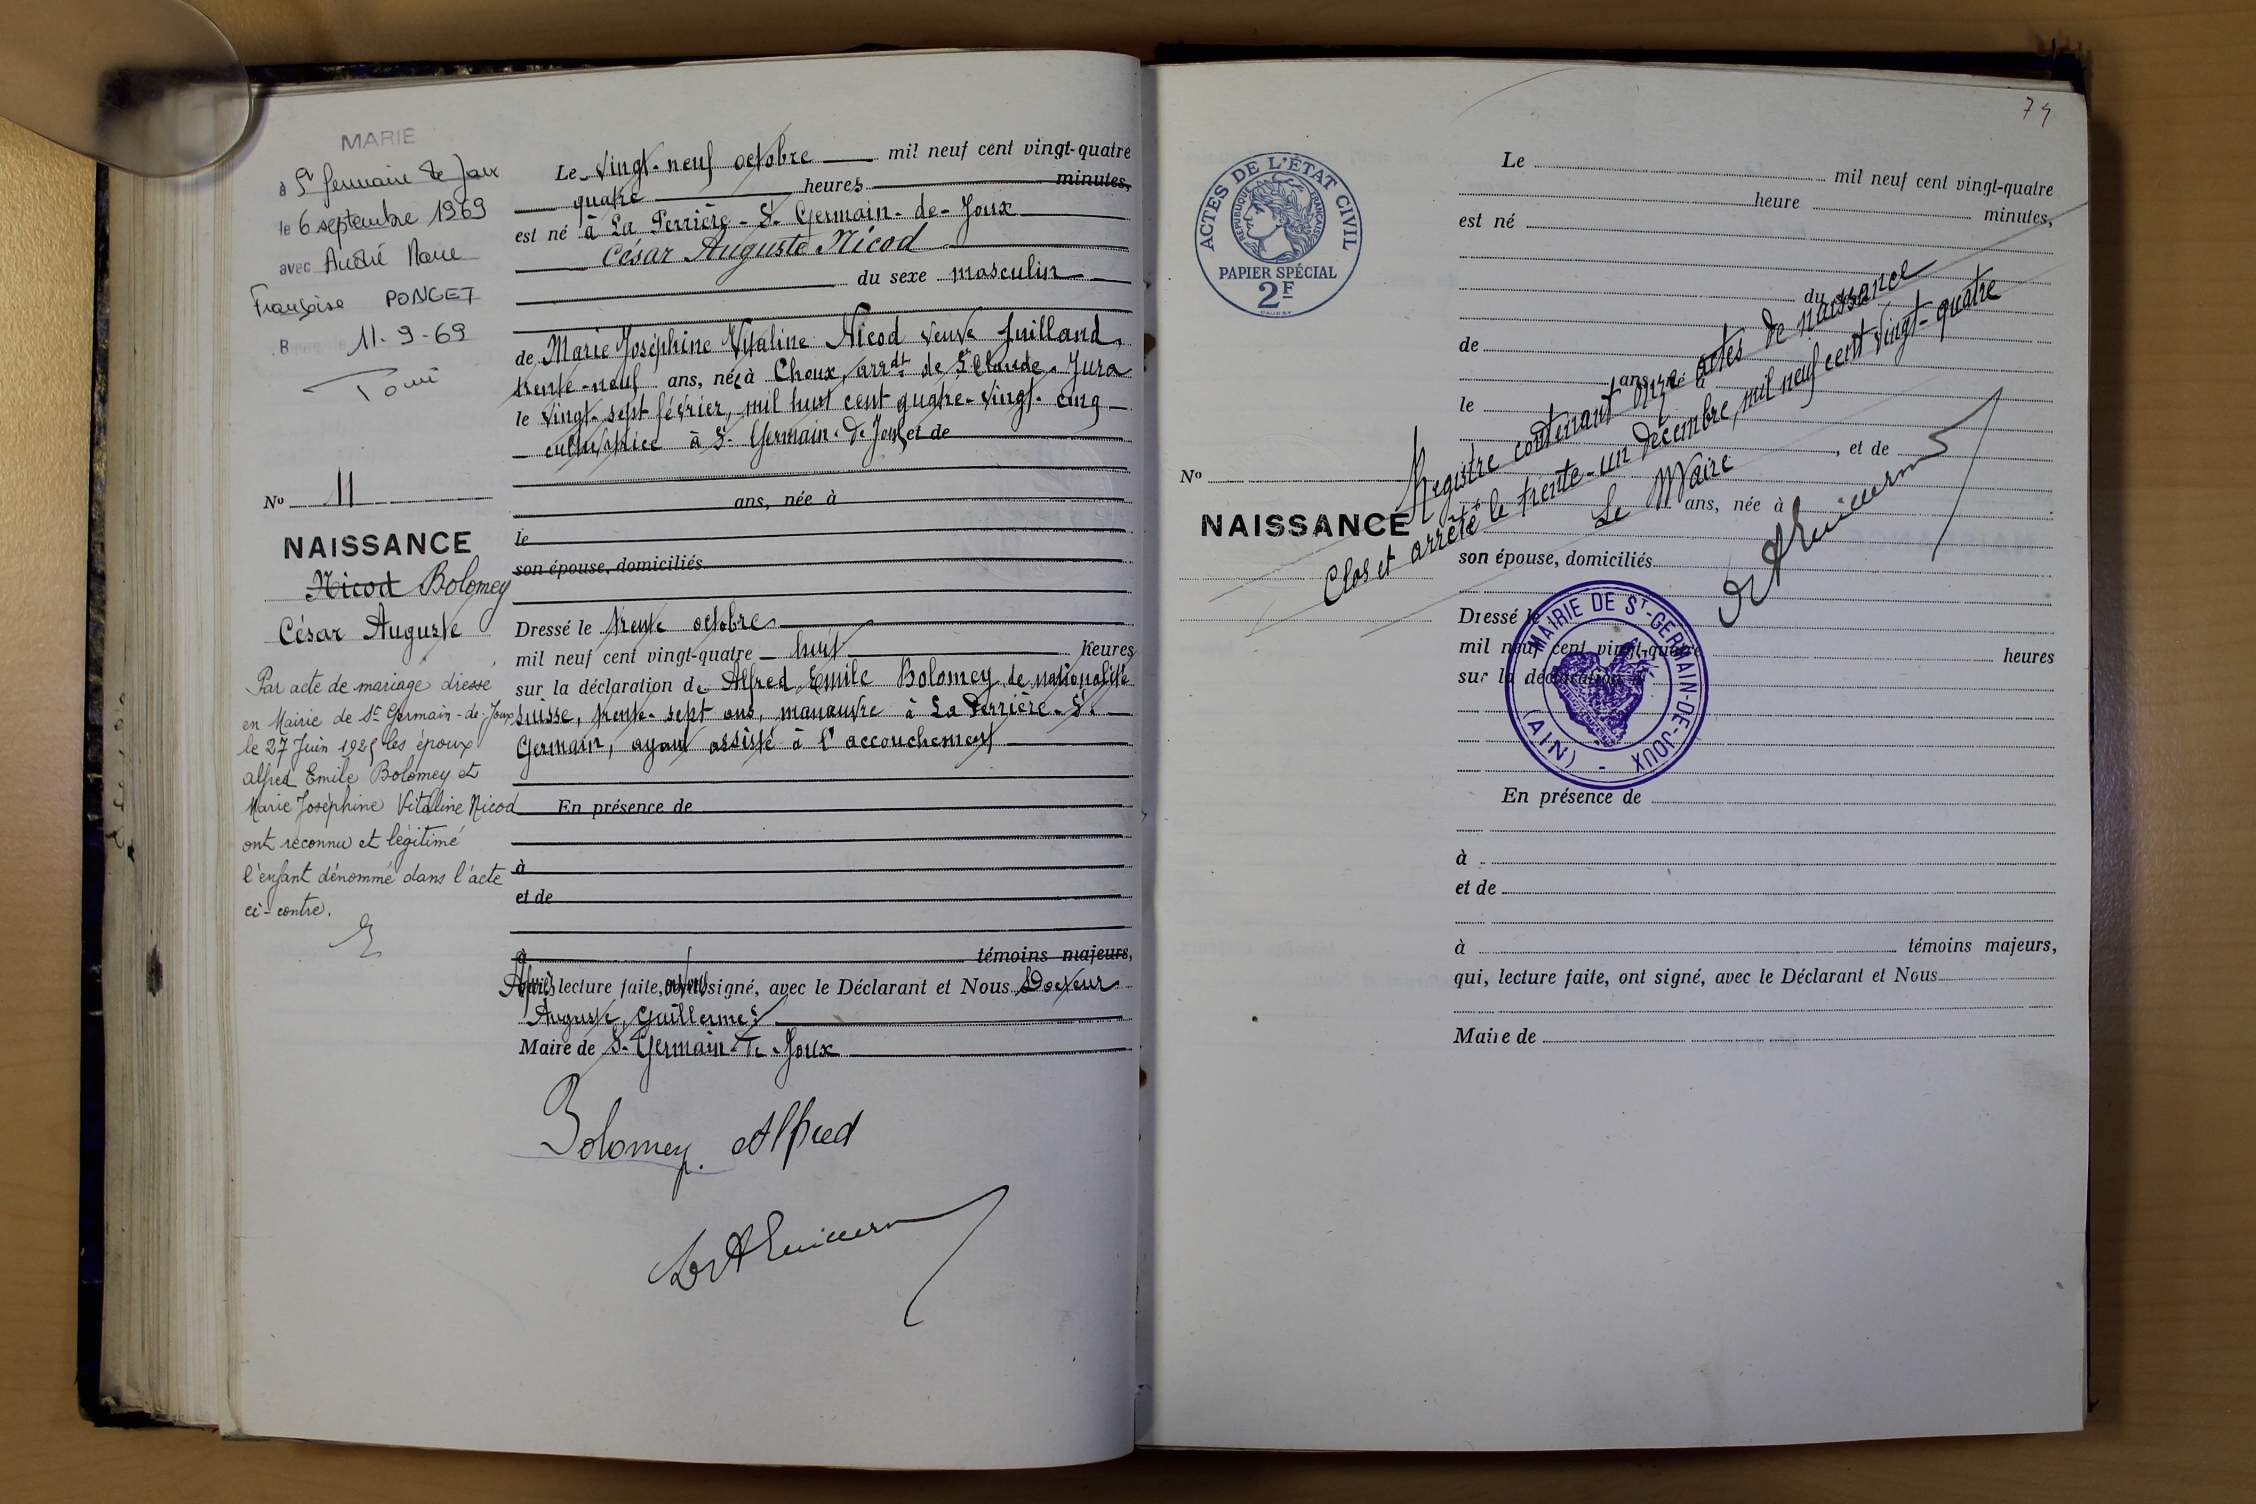 MARIE
à St Germain de Joux
le 6 septembre 1969
avec André Marie
Françoise PONCET
11-9-69
No 11
NAISSANCE
Nicod Bolomey
César Auguste
Par acte de mariage dressé
en Mairie de St Germain-de-Joux
le 27 Juin 1925 les époux
Alfred Emile Bolomey et
Marie Joséphine Vitaline Nicod
ont reconnu et légitimé
l'enfant dénommé dans l'acte
ci-contre.
Le vingt-neuf octobre mil neuf cent vingt-quatre
quatre heures minutes,
est né à La Perrière - St Germain-de-Joux
César Auguste Nicod
du sexe masculin
de Marie Joséphine Vitaline Nicod veuve Juilland,
trente-neuf ans, née à Choux, arrdt de St Claude - Jura
le vingt-sept février, mil huit cent quatre-vingt-cinq
cultivatrice à St Germain-de-Joux et de
ans, née à
le
son épouse, domiciliés
Dressé le trente octobre
mil neuf cent vingt-quatre huit heures
sur la déclaration de Alfred Emile Bolomey de nationalité
suisse, trente-sept ans, manœuvre à La Perrière-St
Germain, ayant assisté à l'accouchement
En présence de
à
et de
à témoins majeurs,
Après lecture faite, avons signé, avec le Déclarant et Nous Docteur
Auguste Guillermet
Maire de St Germain-de-Joux
Bolomey. Alfred
74
ACTES DE L'ÉTAT CIVIL
RÉPUBLIQUE FRANÇAISE
PAPIER SPÉCIAL
2F
No
NAISSANCE
Le mil neuf cent vingt-quatre
heure minutes,
est né
du sexe
de
ans, né à
le
, et de
ans, née à
son épouse, domiciliés
Dressé le
mil neuf cent vingt-quatre heures
sur la déclaration d
En présence de
à
et de
à témoins majeurs,
qui, lecture faite, ont signé, avec le Déclarant et Nous
Maire de
Registre contenant onze actes de naissance
Clos et arrêté le trente-un décembre, mil neuf cent vingt-quatre
Le Maire
MAIRIE DE ST-GERMAIN-DE-JOUX
(AIN)